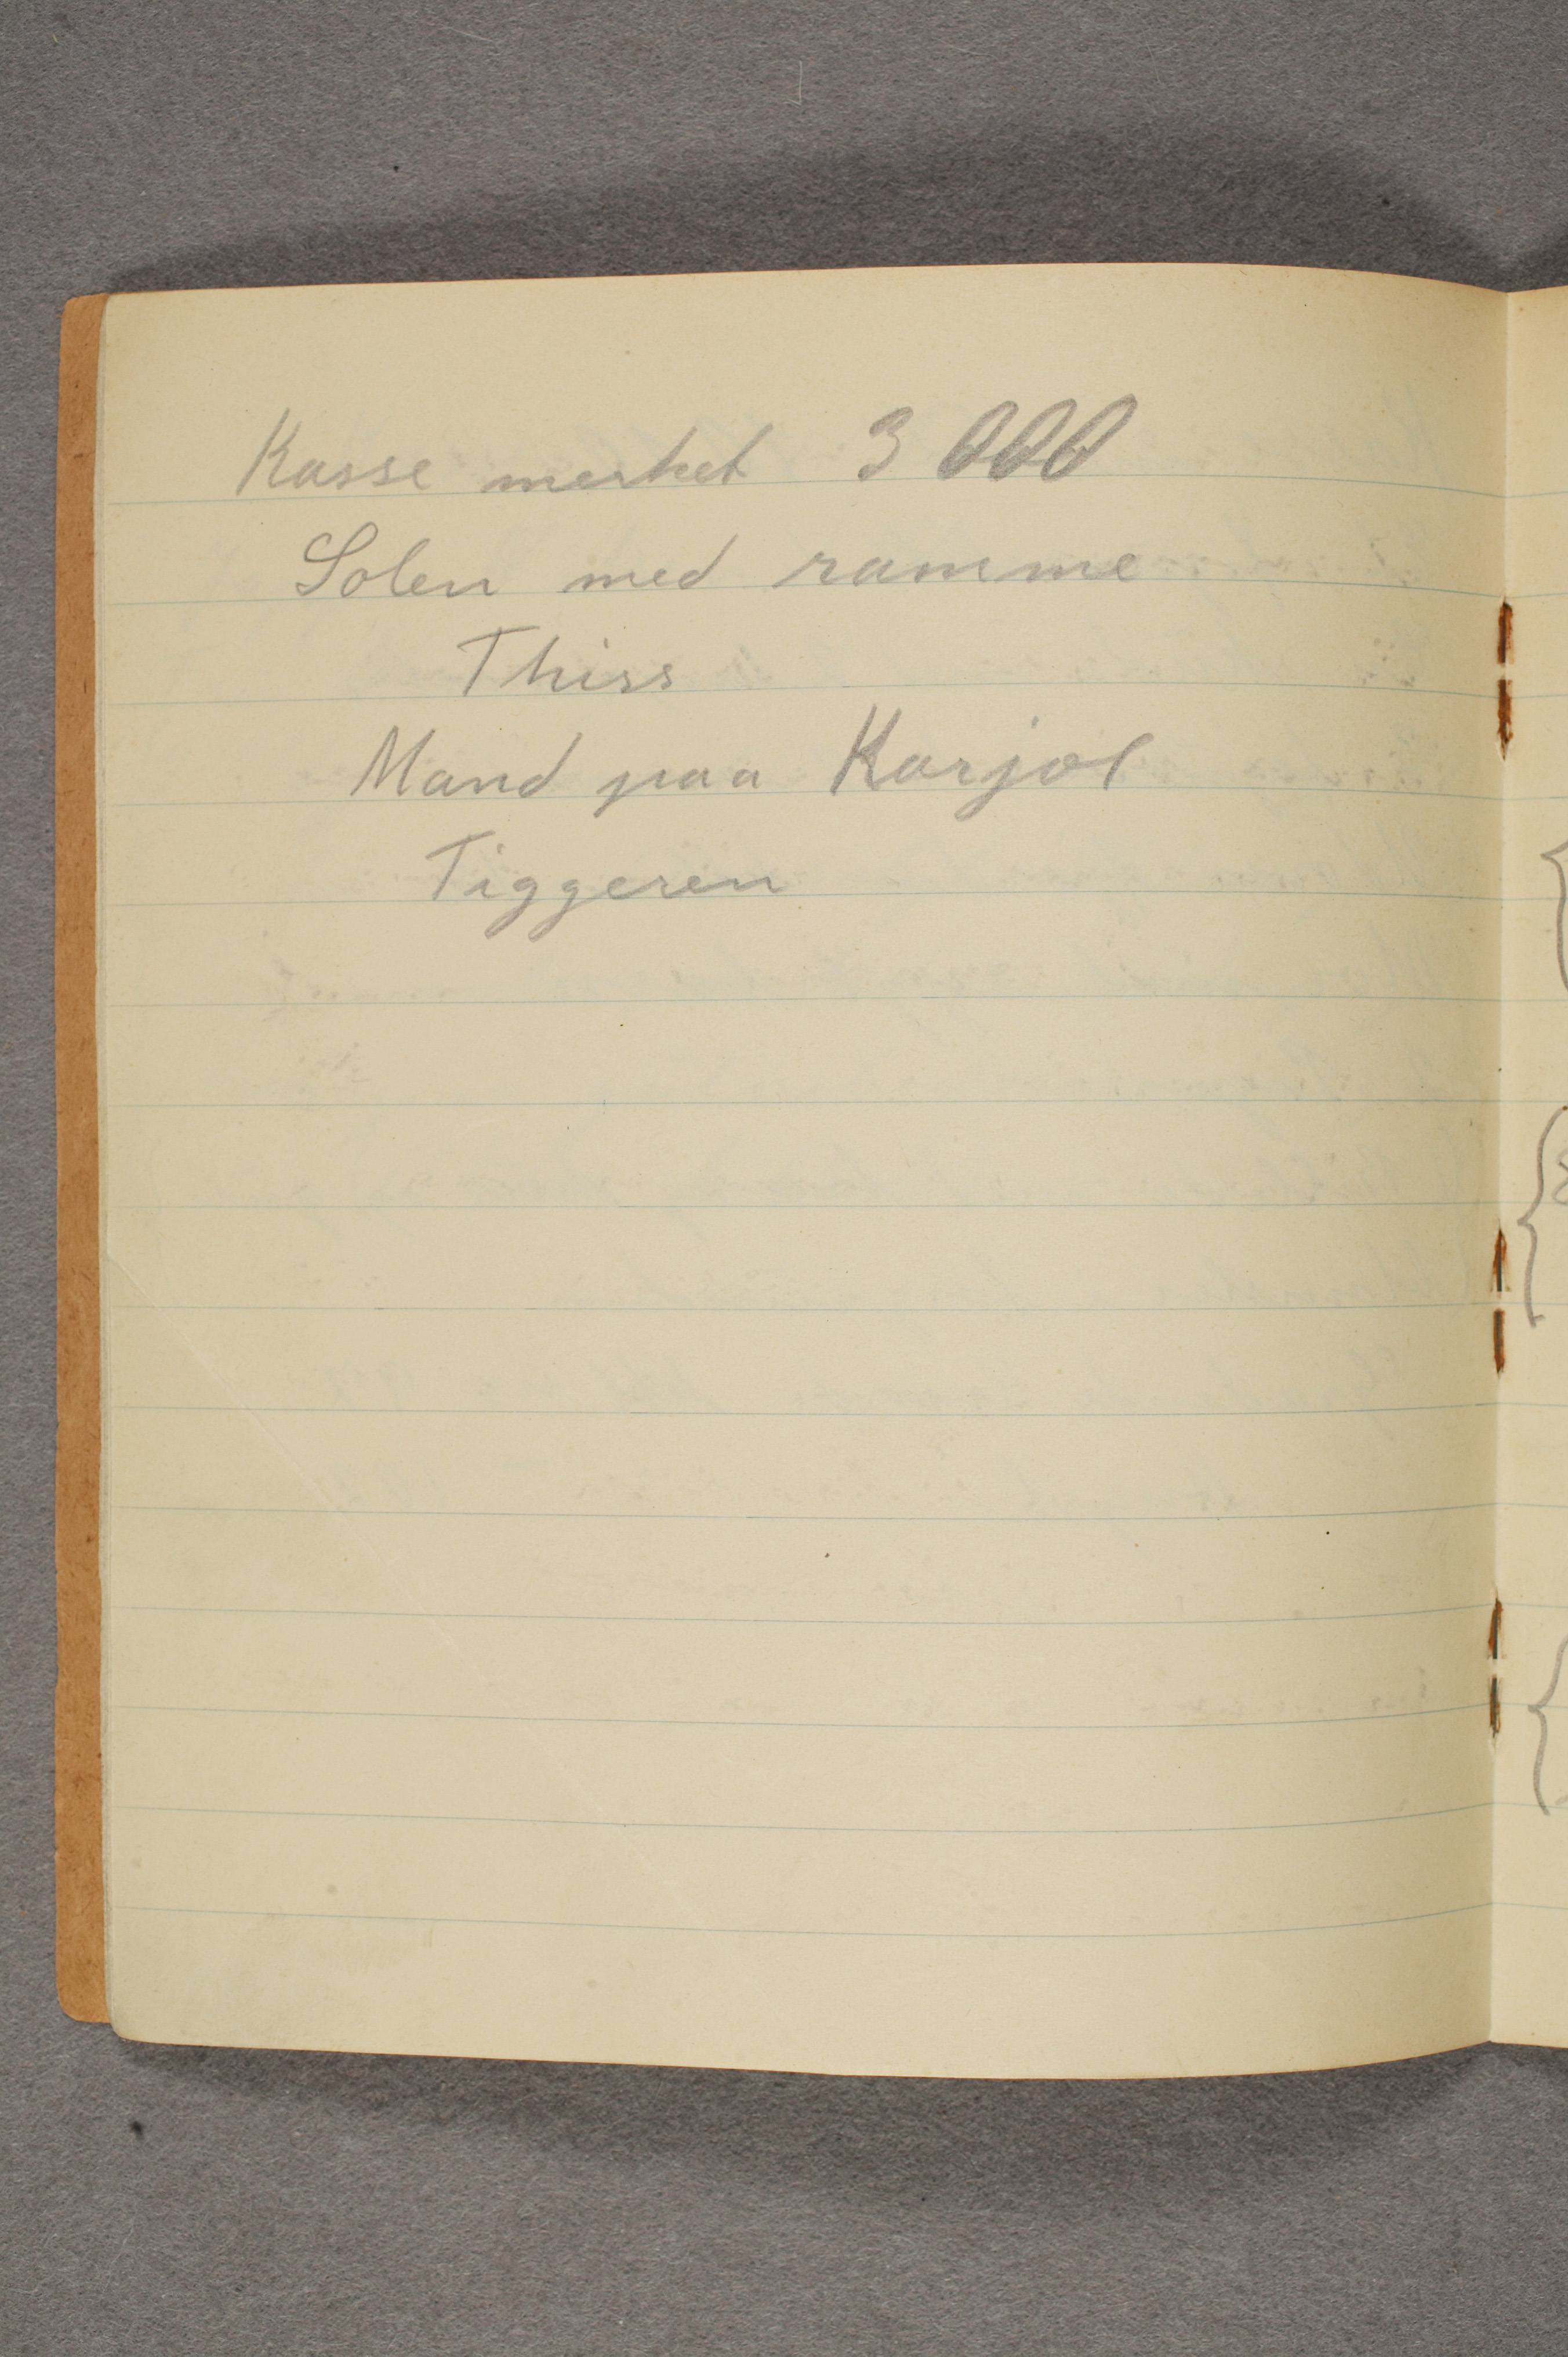 Kasse merket 3000
Solen med ramme
Thiss
Mand paa Karjol
Tiggeren